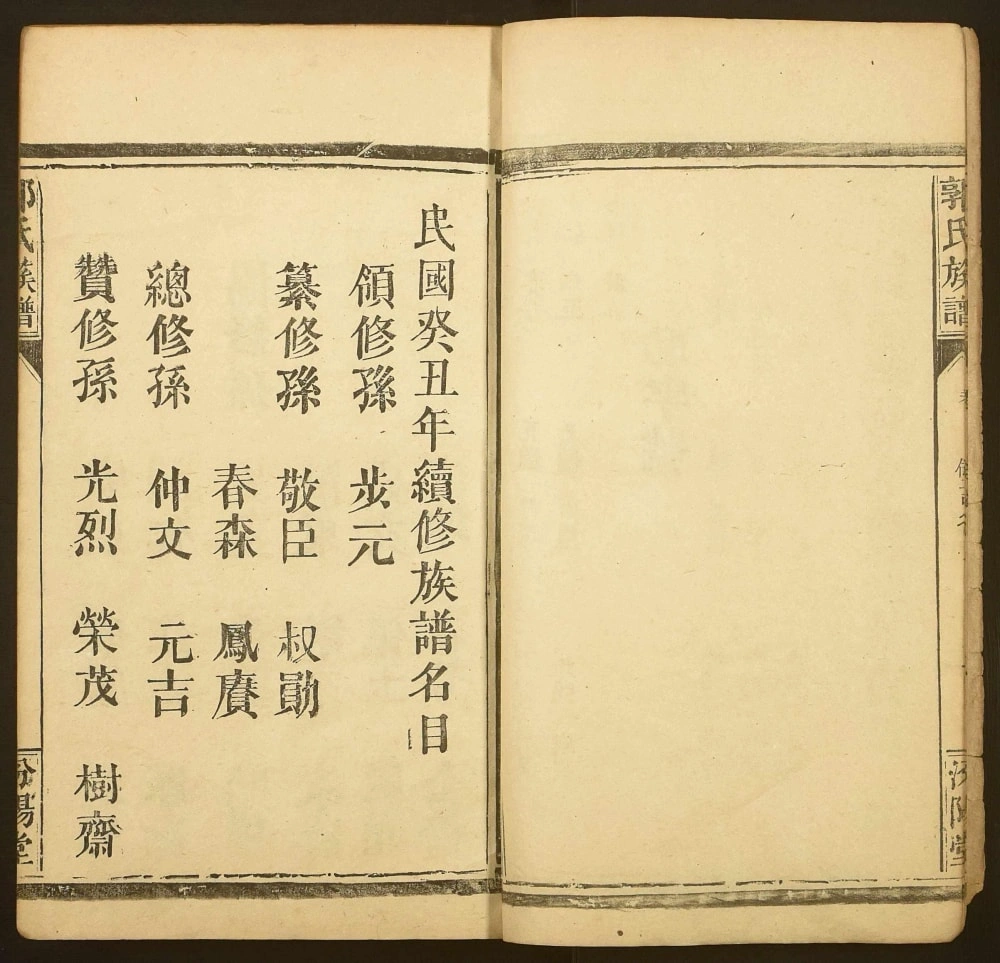 郭氏族譜
汾陽堂
民國癸丑年續修族譜名目
領修孫 步元
纂修孫 敬臣 叔勛
春森 鳳賡
總修孫 仲文 元吉
贊修孫 光烈 榮茂 樹齋
郭氏族譜
汾陽堂